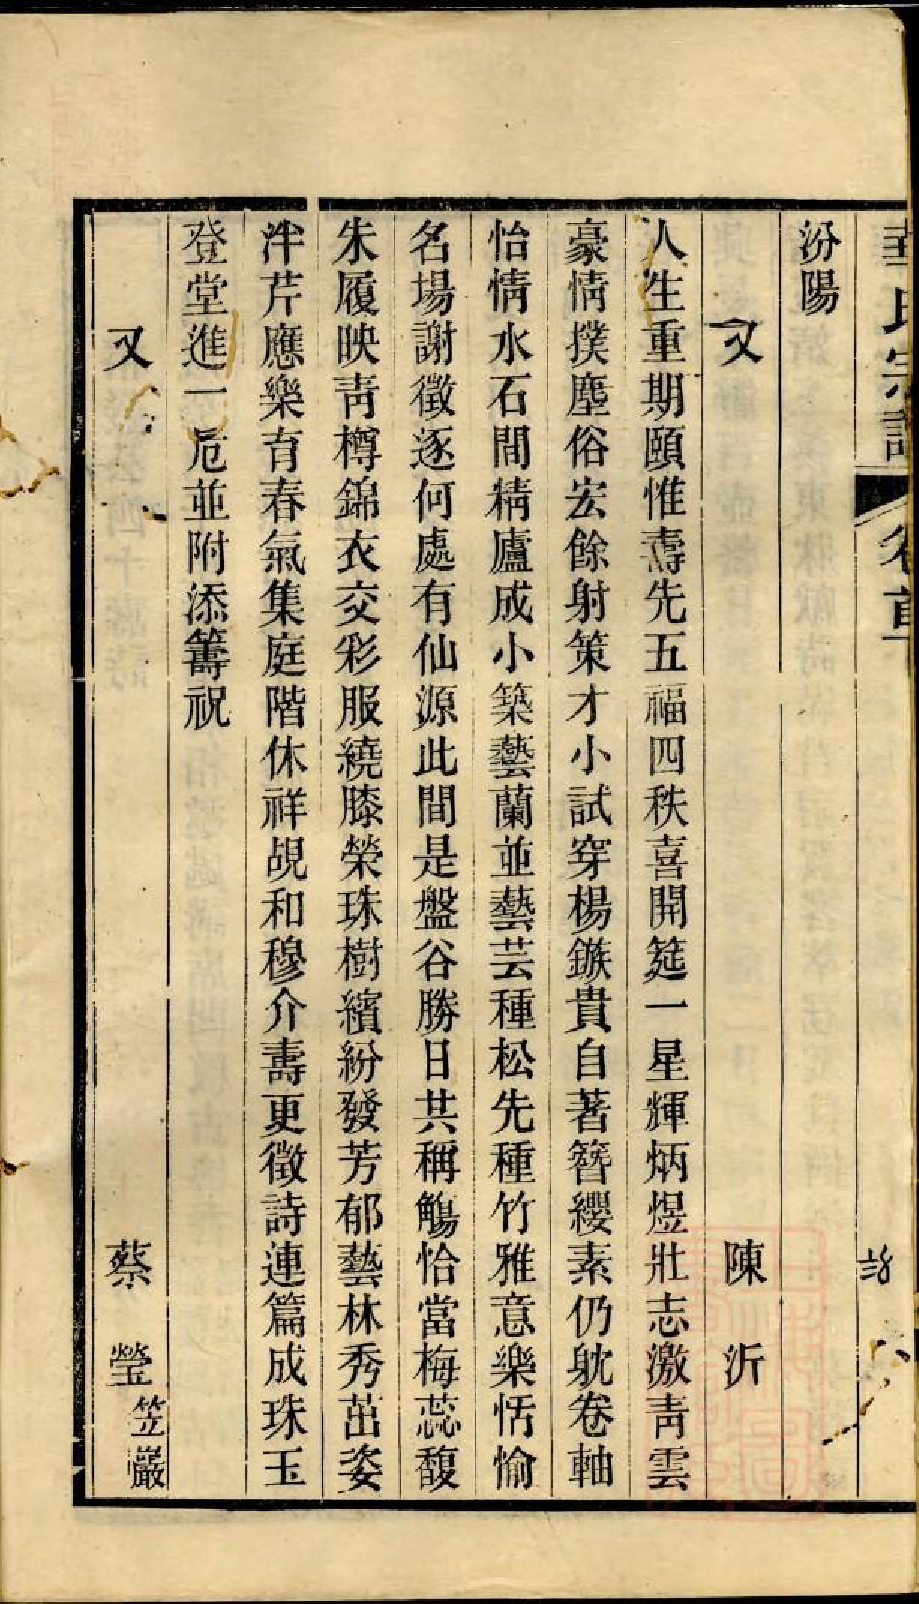 華氏宗譜 卷首下
汾陽
又 陳沂
人生重期頤惟壽先五福四秩喜開筵一星輝炳煜壯志激青雲
豪情撲塵俗宏餘射策才小試穿楊鏃貴自著簪纓素仍躭卷軸
怡情水石間精廬成小築藝蘭並藝芸種松先種竹雅意樂恬愉
名場謝徵逐何處有仙源此間是盤谷勝日共稱觴恰當梅蕊馥
朱履映青樽錦衣交彩服繞膝榮珠樹繽紛發芳郁藝林秀茁姿
泮芹應樂育春氣集庭階休祥覘和穆介壽更徵詩連篇成珠玉
登堂進一卮並附添籌祝
又 蔡瑩笠巖